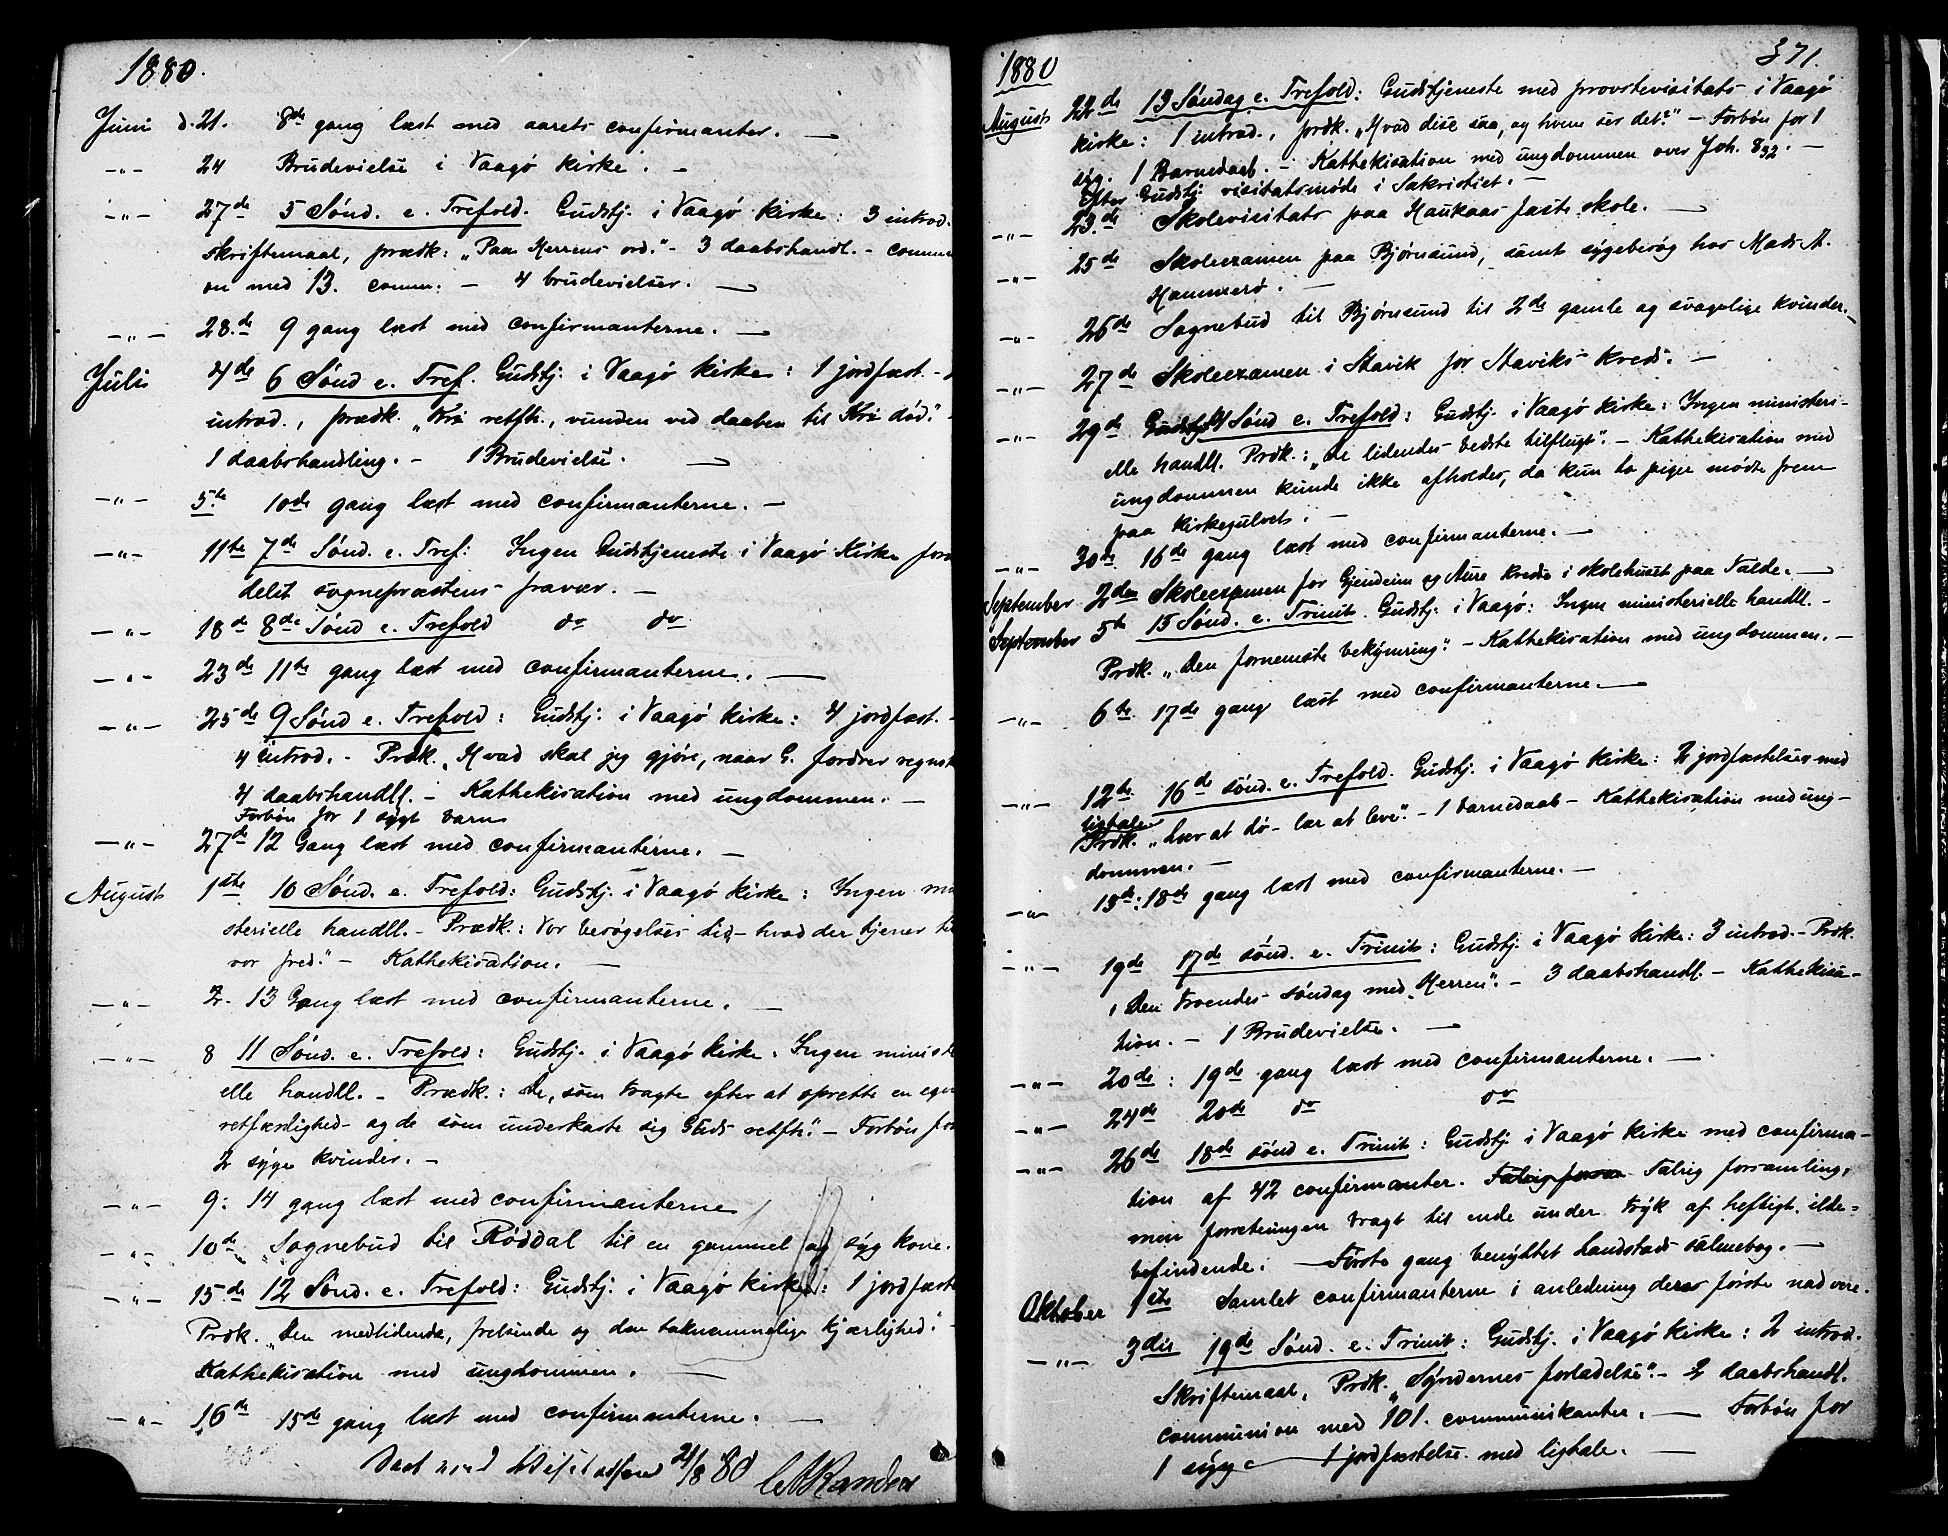 1880.
Juni d. 21. 8de gang læst med aarets confirmanter. —
-"- 24 Brudevielse i Vaagø kirke. -
-"- 27de 5 Sønd. e. Trefold. Gudstj. i Vaagø kirke: 3 introd.
skriftemaal, prædk: „Paa Herrens ord." - 3 daabshandl. - commu
on med 13. comm: - 4 brudevielser. —
-"- 28.de 9 gang læst med confirmanterne. —
Juli 4de 6 Sønd e. Tref. Gudstj. i Vaagø kirke: 1 jordfæst. -
introd., prædk. „Kri retfh., vunden ved daaben til Kri død."
1 daabshandling. - 1 Brudevielse. —
-"- 5te 10de gang læst med confirmanterne. -
-"- 11te 7de Sønd. e. Tref: Ingen Gudstjeneste i Vaagø Kirke for
delst sognepræstens fravær. -
-"- 18de 8de Sønd e. Trefold do do
-"- 23de 11te gang læst med confirmanterne. —
-"- 25de 9 Sønd e. Trefold: Gudstj. i Vaagø kirke: 4 jordfæst. -
4 introd. - Prædk. „Hvad skal jeg gjøre, naar G. fordrer regnsk
4 daabshandll. - Kathekisation med ungdommen. -
Forbøn for 1 sygt barn
-"- 27de 12 Gang læst med confirmanterne. -
August 1ste 10 Sønd. e. Trefold: Gudstj. i Vaagø kirke: Ingen mi
sterielle handll. - Prædk.: Vor besøgelses tid - hvad der tjener til
vor fred." - Kathekisation. —
-"- 2. 13 Gang læst med confirmanterne. -
-"- 8 11 Sønd. e. Trefold: Gudstj. i Vaagø kirke. Ingen minist
elle handll. - Prædk.: De, som tragte efter at oprette en egen
retfærdighed - og de som underkaste sig Guds retfh." - Forbøn for
2 syge kvinder. -
-"- 9: 14 gang læst med confirmanterne
-"- 10de Sognebud til Røddal til en gammel og syg kone.
-"- 15de 12 Sønd. e. Trefold: Gudstj. i Vaagø kirke: 1 jordfæst
Prdk. „Den medlidende, frelsende og den taknemmelige kjærlighed." -
Kathekisation med ungdommen. —
-"- 16de 15de gang læst med confirmanterne. —
21/8 80
1880 371.
August 22de 13 Søndag e. Trefold: Gudstjeneste med provstevisitats i Vaagø
kirke: 1 introd., prdk. „Hvad disse saa, og hvem ser det?" - Forbøn for 1
syg. 1 Barnedaab. - Kathekisation med ungdommen over Joh. 8 32. -
Efter Gudstj. visitatsmøde i Sakristiet. -
-"- 23.de Skolevisitats paa Haukaas faste skole. —
-"- 25de Skoleexamen paa Bjørnsund, samt sygebesøg hos Mads A.
Hammerø. -
-"- 26de Sognebud til Bjørnsund til 2de gamle og svagelige kvinder. -
-"- 27de Skoleexamen i Stavik for Staviks kreds. -
-"- 29de 14 Sønd e. Trefold: Gudstj. i Vaagø kirke: Ingen ministeri-
elle handll. Prdk.: „De lidendes bedste tilflugt". - Kathekisation med
ungdommen kunde ikke afholdes, da kun to piger mødte frem
paa kirkegulvet. -
-"- 30te 16de gang læst med confirmanterne. —
September 2den Skoleexamen for Gjendeim og Aure kreds i skolehuset paa Talde. —
September 5te 15 Sønd. e. Trinit. Gudstj. i Vaagø: Ingen ministerielle handll. -
Prdk. „Den fornemste bekymring". - Kathekisation med ungdommen. -
-"- 6te 17de gang læst med confirmanterne. —
-"- 12te 16de sønd. e. Trefold. Gudstj. i Vaagø kirke: 2 jordfæstelser med
ligtale
Prdk. „Lær at dø - lær at leve". - 1 barnedaab - Kathekisation med ung-
dommen. -
-"- 13de: 18de gang læst med confirmanterne. -
-"- 19de 17de sønd. e. Trinit: Gudstj. i Vaagø kirke: 3 introd. - Prdk.
„Den troendes søndag med Herren". - 3 daabshandl. - Kathekisa-
tion. - 1 Brudevielse. —
-"- 20de: 19de gang læst med confirmanterne. —
-"- 24de 20de do do
-"- 26de 18de sønd e. Trinit: Gudstj. i Vaagø kirke med confirma-
tion af 42 confirmanter. Talrig forsamling,
men forretningen bragt til ende under tryk af heftigt ilde-
befindende. — Første gang benyttet Landstads salmebog. -
Oktober 1ste Samlet confirmanterne i anledning deres første nadvere.
-"- 3die 19de Sønd. e. Trinit: Gudstj. i Vaagø kirke: 2 introd.
Skriftemaal, Prdk. „Syndernes forladelse". - 2 daabshandl.
communion med 101. communikanter. — Forbøn for
1 syg - 1 jordfæstelse med ligtale. —